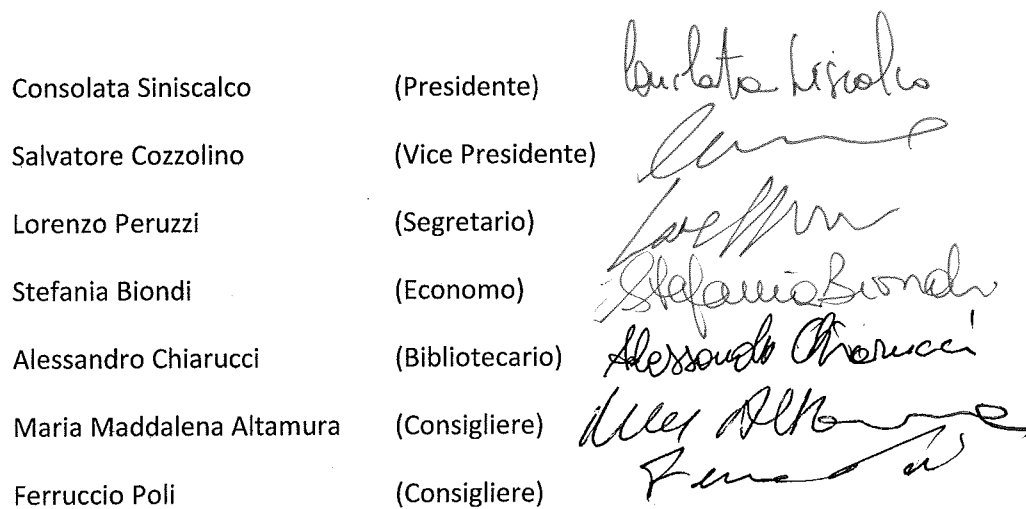 Consolata Siniscalco (Presidente) Consolata Siniscalco
Salvatore Cozzolino (Vice Presidente)
Lorenzo Peruzzi (Segretario)
Stefania Biondi (Economo) Stefania Biondi
Alessandro Chiarucci (Bibliotecario) Alessandro Chiarucci
Maria Maddalena Altamura (Consigliere) Altamura
Ferruccio Poli (Consigliere)